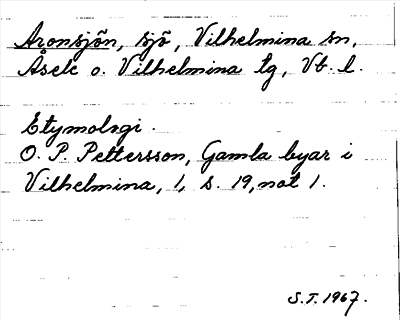 Aronsjön, sjö, Vilhelmina sn,
Åsele o. Vilhelmina tg, Vb. l.
Etymologi.
O. P. Pettersson, Gamla byar i
Vilhelmina, 1, s. 19, not 1.
S.T. 1967.